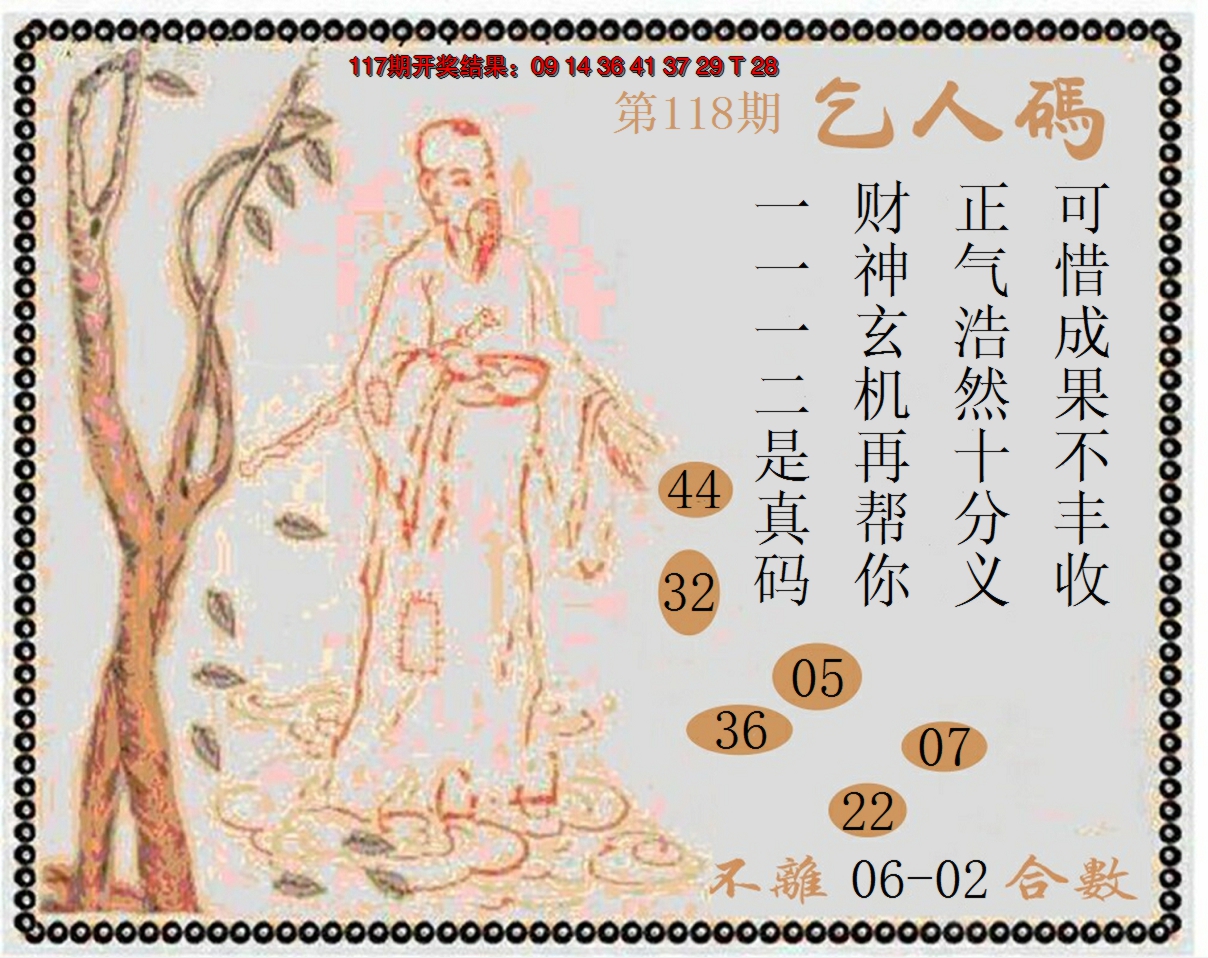 117期开奖结果：09 14 36 41 37 29 T 28
第118期 乞人碼
可惜成果不丰收
正气浩然十分义
财神玄机再帮你
一一一二是真码
44
32
05
36
07
22
不離 06-02 合數